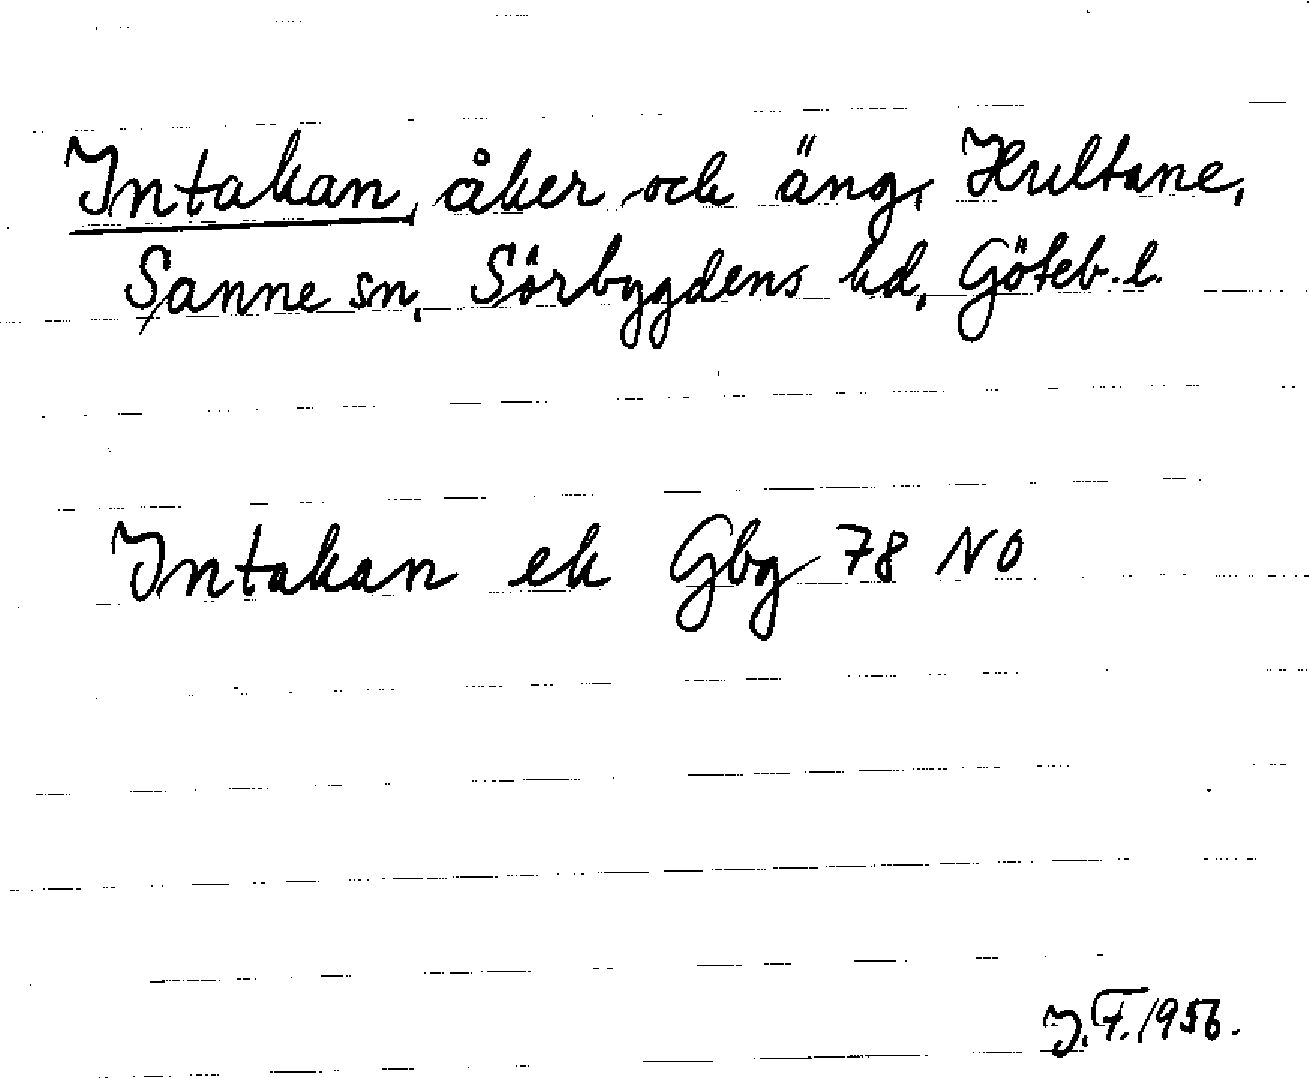 Intakan, åker och äng, Hultane,
Sanne sn, Sörbygdens hd, Göteb. l.
Intakan ek Gbg 78 NO
I.F. 1956.